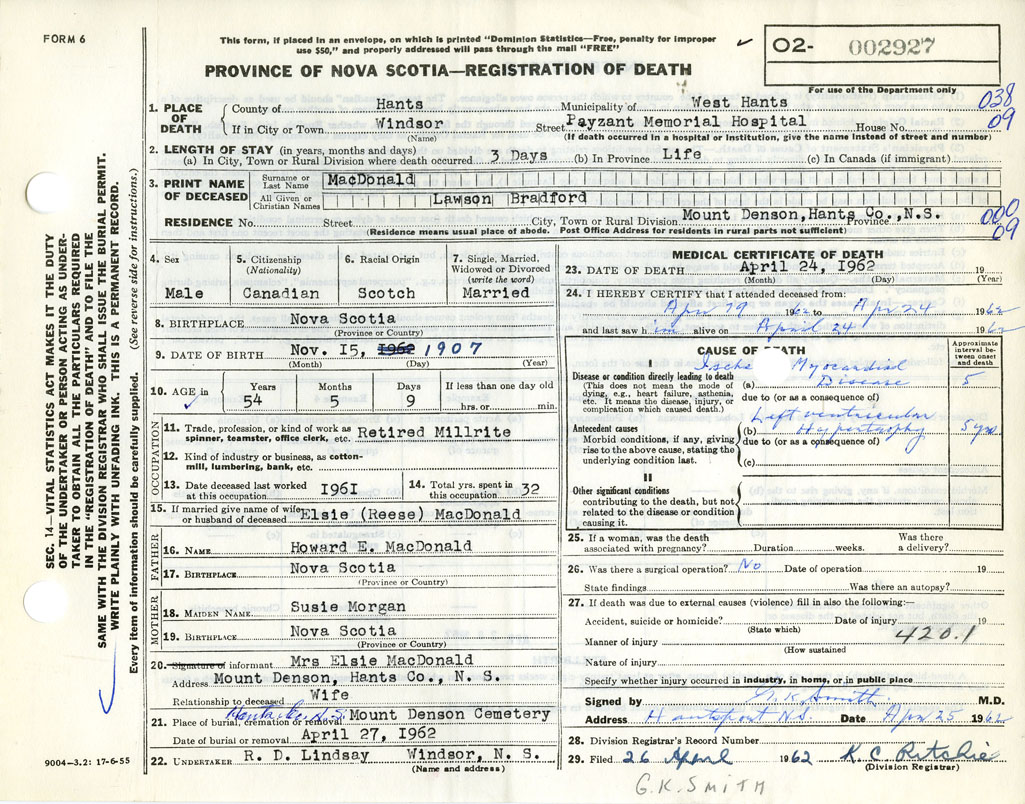 FORM 6
This form, if placed in an envelope, on which is printed "Dominion Statistics—Free, penalty for improper
use $50," and properly addressed will pass through the mail "FREE"
✓
O2- 002927
For use of the Department only
PROVINCE OF NOVA SCOTIA—REGISTRATION OF DEATH
1. PLACE OF DEATH
County of Hants Municipality of West Hants 038
If in City or Town Windsor Street Payzant Memorial Hospital House No. 09
(Name) (If death occurred in a hospital or institution, give the name instead of street and number)
2. LENGTH OF STAY (in years, months and days)
(a) In City, Town or Rural Division where death occurred 3 Days (b) In Province Life (c) In Canada (if immigrant)
3. PRINT NAME OF DECEASED
Surname or Last Name MacDonald
All Given or Christian Names Lawson Bradford
RESIDENCE No. Street City, Town or Rural Division Mount Denson, Hants Co., N.S. Province 000
(Residence means usual place of abode. Post Office Address for residents in rural parts not sufficient) 09
4. Sex Male
5. Citizenship (Nationality) Canadian
6. Racial Origin Scotch
7. Single, Married, Widowed or Divorced (write the word) Married
8. BIRTHPLACE Nova Scotia
(Province or Country)
9. DATE OF BIRTH Nov. I5, 1962 1907
(Month) (Day) (Year)
10. AGE in ✓ Years 54 Months 5 Days 9 If less than one day old hrs. or min.
OCCUPATION
11. Trade, profession, or kind of work as spinner, teamster, office clerk, etc. Retired Millrite
12. Kind of industry or business, as cotton-mill, lumbering, bank, etc.
13. Date deceased last worked at this occupation I96I 14. Total yrs. spent in this occupation 32
15. If married give name of wife or husband of deceased Elsie (Reese) MacDonald
FATHER
16. NAME Howard E. MacDonald
17. BIRTHPLACE Nova Scotia
(Province or Country)
MOTHER
18. MAIDEN NAME Susie Morgan
19. BIRTHPLACE Nova Scotia
(Province or Country)
20. Signature of informant Mrs Elsie MacDonald
Address Mount Denson, Hants Co., N. S.
Relationship to deceased Wife
Hants Co. N.S.
21. Place of burial, cremation or removal Mount Denson Cemetery
Date of burial or removal April 27, I962
22. UNDERTAKER R. D. Lindsay Windsor, N. S.
(Name and address)
MEDICAL CERTIFICATE OF DEATH
23. DATE OF DEATH April 24, I962 19
(Month) (Day) (Year)
24. I HEREBY CERTIFY that I attended deceased from:
Apr 19 1962 to Apr 24 1962
and last saw him alive on April 24 1962
CAUSE OF DEATH
Approximate interval between onset and death
I
Disease or condition directly leading to death
(This does not mean the mode of dying, e.g., heart failure, asthenia, etc. It means the disease, injury, or complication which caused death.)
(a) Myocardial Disease 5
due to (or as a consequence of)
Antecedent causes
Morbid conditions, if any, giving rise to the above cause, stating the underlying condition last.
(b) Left ventricular Hypertrophy 5 yrs
due to (or as a consequence of)
(c)
II
Other significant conditions
contributing to the death, but not related to the disease or condition causing it.
25. If a woman, was the death associated with pregnancy? Duration weeks. Was there a delivery?
26. Was there a surgical operation? No Date of operation 19
State findings Was there an autopsy?
27. If death was due to external causes (violence) fill in also the following:—
Accident, suicide or homicide? Date of injury 19
(State which)
Manner of injury 420.1
(How sustained
Nature of injury
Specify whether injury occurred in industry, in home, or in public place
Signed by G. K. Smith M.D.
Address Hantsport N.S. Date Apr 25 1962
28. Division Registrar's Record Number
29. Filed 26 April 1962 K C Ritchie
(Division Registrar)
G.K. SMITH
SEC. 14—VITAL STATISTICS ACT MAKES IT THE DUTY
OF THE UNDERTAKER OR PERSON ACTING AS UNDER-
TAKER TO OBTAIN ALL THE PARTICULARS REQUIRED
IN THE "REGISTRATION OF DEATH" AND TO FILE THE
SAME WITH THE DIVISION REGISTRAR WHO SHALL ISSUE THE BURIAL PERMIT.
WRITE PLAINLY WITH UNFADING INK. THIS IS A PERMANENT RECORD.
Every item of information should be carefully supplied. (See reverse side for instructions.)
9004—3.2: 17-6-55